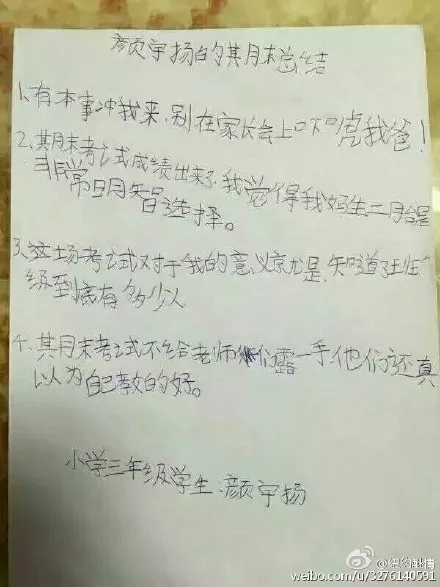 颜宇扬的其月末总结
1、有本事冲我来,别在家长会上吓唬我爸!
2、其月末考试成绩出来了,我觉得我妈生二月台是
非常明智 选择。
3、这场考试对于我的意义京尤是,知道了班
级到底有多少人
4、其月末考试不给老师们露一手他们还真
以为自己教的好。
小学三年级学生:颜宇扬
@纽约野情
weibo.com/u/3276140591